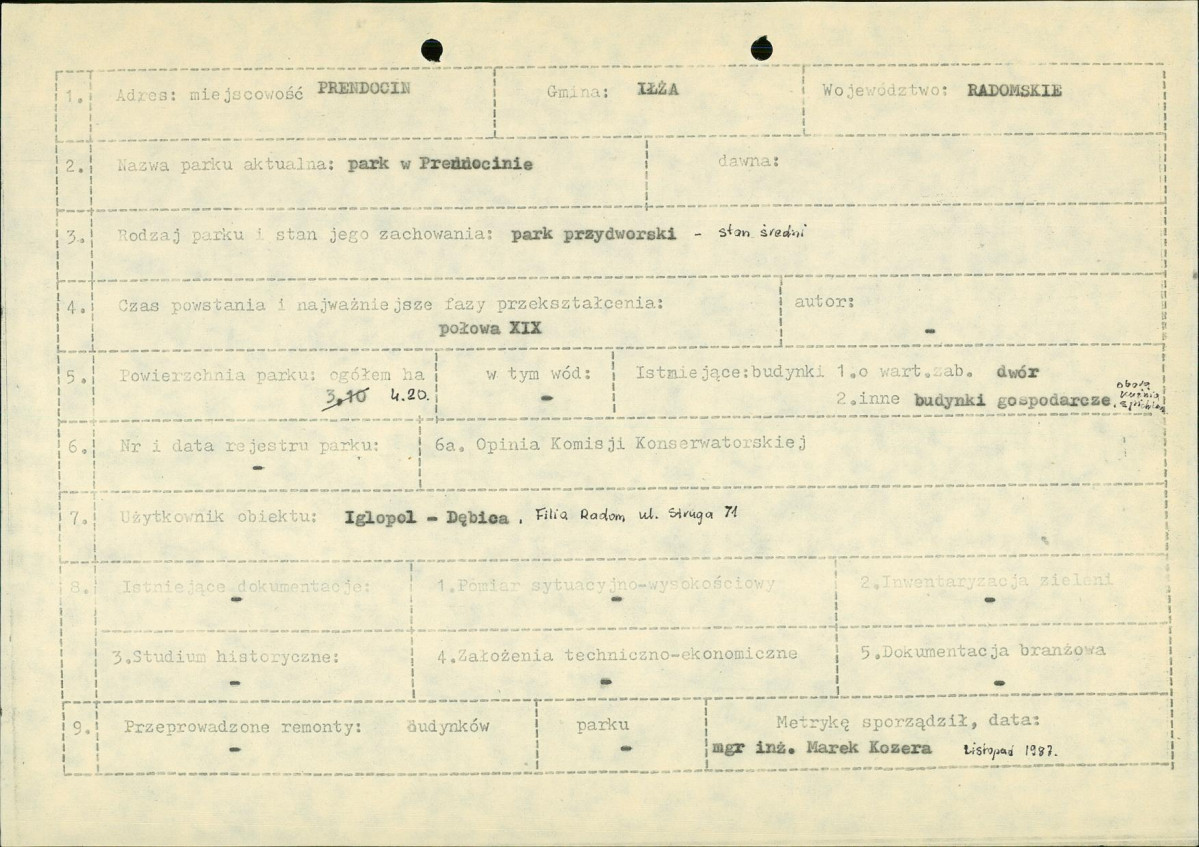 1. Adres: miejscowość PRENDOCIN Gmina: IŁŻA Województwo: RADOMSKIE
2. Nazwa parku aktualna: park w Prendocinie dawna:
3. Rodzaj parku i stan jego zachowania: park przydworski - stan średni
4. Czas powstania i najważniejsze fazy przekształcenia: autor:
połowa XIX -
5. Powierzchnia parku: ogółem ha w tym wód: Istniejące: budynki 1. o wart. zab. dwór
3,10 4.20. - 2. inne budynki gospodarcze, obora
6. Nr i data rejestru parku: 6a. Opinia Komisji Konserwatorskiej
-
7. Użytkownik obiektu: Iglopol - Dębica, Filia Radom, ul. Struga 71
8. Istniejące dokumentacje: 1. Pomiar sytuacyjno-wysokościowy 2. Inwentaryzacja zieleni
- - -
3. Studium historyczne: 4. Założenia techniczno-ekonomiczne 5. Dokumentacja branżowa
- - -
9. Przeprowadzone remonty: budynków parku Metrykę sporządził, data:
- - mgr inż. Marek Kozera Listopad 1987.